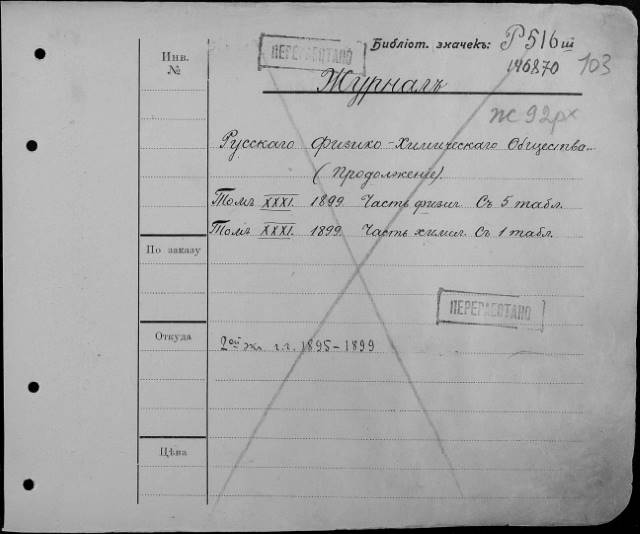 Инв.
№
ПЕРЕРАБОТАНО
Библіот. значекъ: P516III
146870 103
Журналъ
Ж 92рх
Русскаго Физико-Химическаго Общества.
(Продолженіе).
Томъ XXXI. 1899. Часть физич. Съ 5 табл.
Томъ XXXI. 1899. Часть химич. Съ 1 табл.
По заказу
ПЕРЕРАБОТАНО
Откуда
2ой эк. г.г. 1895–1899
Цѣна